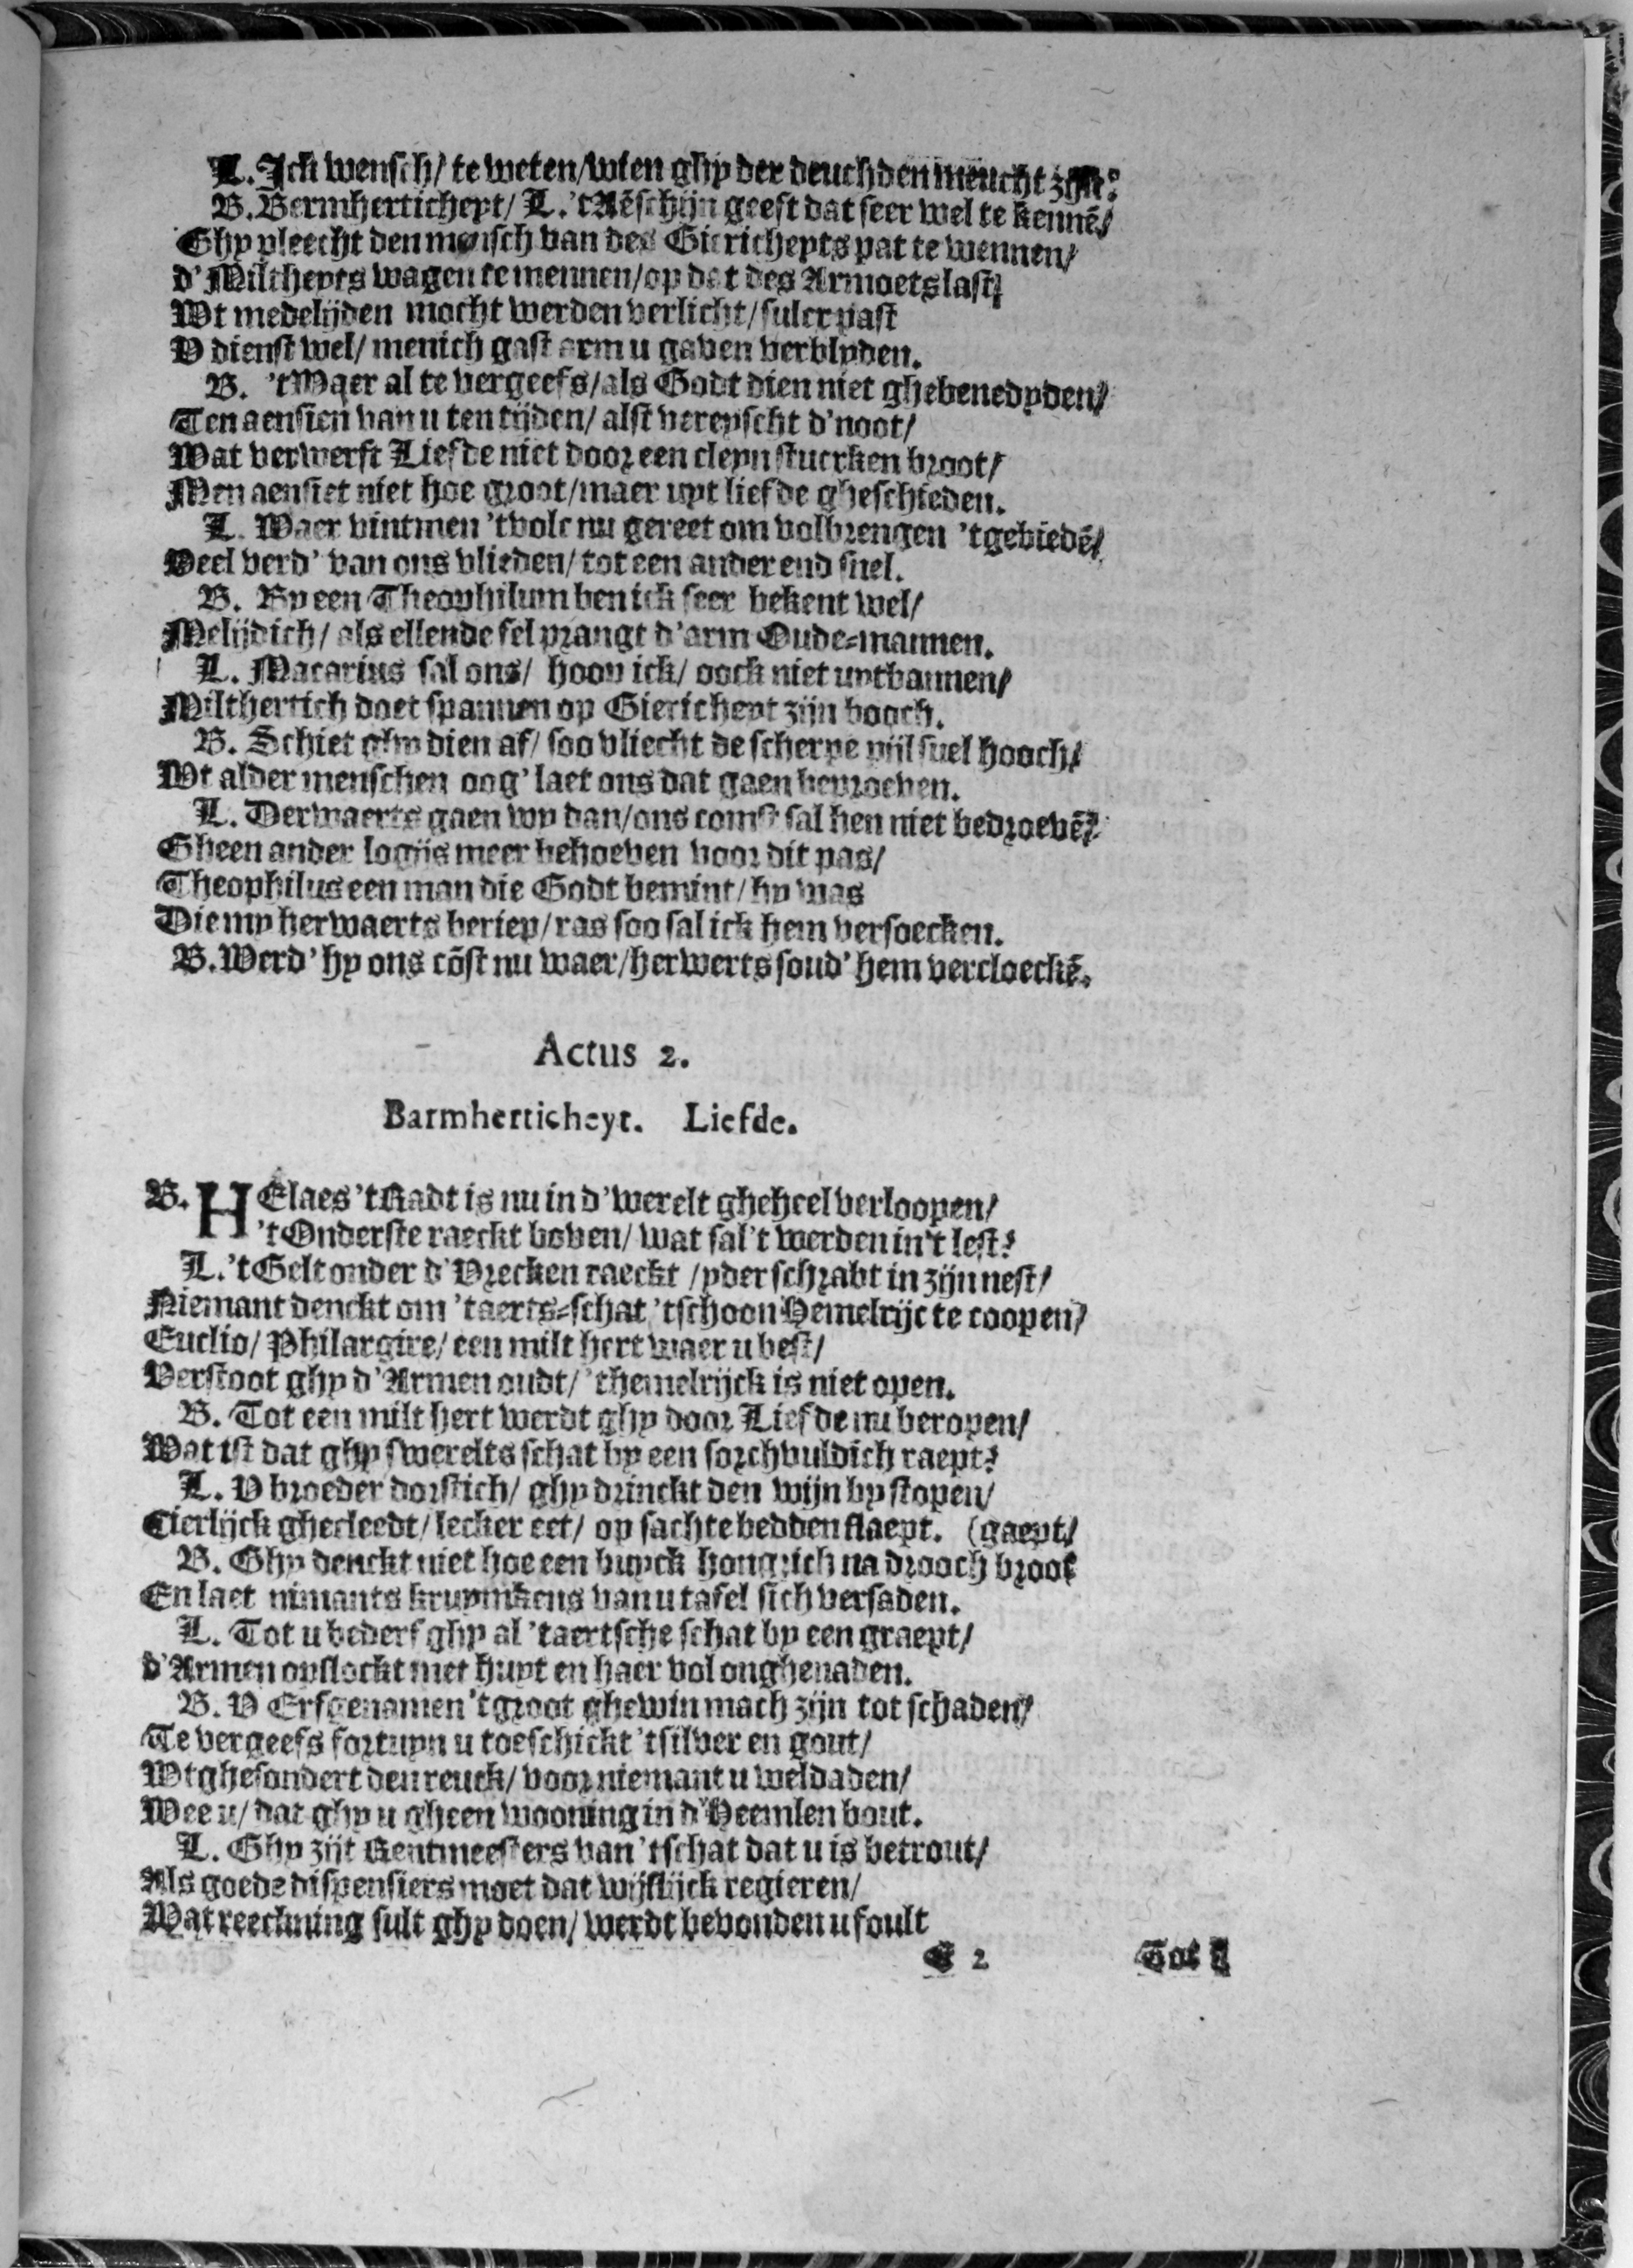 L. Ick wensch/ te weten/ wien ghy der deuchden meucht zijn?
B. Bermherticheyt/ L. 'tAẽschijn geeft dat seer wel te kennẽ/
Ghy pleecht den mensch van des Giericheyts pat te wennen/
d'Miltheyts wagen te mennen/ op dat des Armoets last/
Wt medelijden mocht werden verlicht/ sulcx past
V dienst wel/ menich gast arm u gaven verblyden.
B. 'tWaer al te vergeefs/ als Godt dien niet ghebenedyden/
Ten aensien van u ten tijden/ alst vereyscht d'noot/
Wat verwerft Liefde niet door een cleyn stucxken broot/
Men aensiet niet hoe groot/ maer uyt liefde gheschieden.
L. Waer vintmen 'tvolc nu gereet om volbrengen 'tgebiedẽ/
Veel verd' van ons vlieden/ tot een ander end snel.
B. By een Theophilum ben ick seer bekent wel/
Melijdich/ als ellende fel prangt d'arm Oude-mannen.
L. Macarius sal ons/ hoop ick/ oock niet uytbannen/
Milthertich doet spannen op Giericheyt zijn booch.
B. Schiet ghy dien af/ soo vliecht de scherpe pijl snel hooch/
Wt alder menschen oog' laet ons dat gaen beproeven.
L. Derwaerts gaen wy dan/ ons comst sal hen niet bedroevẽ/
Gheen ander logijs meer behoeven voor dit pas/
Theophilus een man die Godt bemint/ hy was
Die my herwaerts beriep/ ras soo sal ick hem versoecken.
B. Werd' hy ons cõst nu waer/ herwerts soud' hem vercloeckẽ.
Actus 2.
Barmherticheyt. Liefde.
B. HElaes 'tRadt is nu in d'werelt gheheel verloopen/
'tOnderste raeckt boven/ wat sal't werden in't lest?
L. 'tGelt onder d'Vrecken raeckt / yder schrabt in zijn nest/
Niemant denckt om 'taerts-schat 'tschoon Hemelrijc te coopen/
Euclio/ Philargire/ een milt hert waer u best/
Verstoot ghy d'Armen oudt/ 'themelrijck is niet open.
B. Tot een milt hert werdt ghy door Liefde nu beropen/
Wat ist dat ghy swerelts schat by een sorchvuldich raept?
L. V broeder dorstich/ ghy drinckt den wijn by stopen/
Cierlijck ghecleedt/ lecker eet/ op sachte bedden slaept. (gaept/
B. Ghy denckt niet hoe een buyck hongrich na drooch broot
En laet nimants kruymkens van u tafel sich versaden.
L. Tot u bederf ghy al 'taertsche schat by een graept/
d'Armen opslockt met huyt en haer vol onghenaden.
B. V Erfgenamen 'tgroot ghewin mach zijn tot schaden/
Te vergeefs fortuyn u toeschickt 'tsilver en gout/
Wtghesondert den reuck/ voor niemant u weldaden/
Wee u/ dat ghy u gheen wooning in d'Heemlen bout.
L. Ghy zijt Rentmeesters van 'tschat dat u is betrout/
Als goede dispensiers moet dat wijslijck regieren/
Wat reeckning sult ghy doen/ werdt bevonden u foult
2
Tot